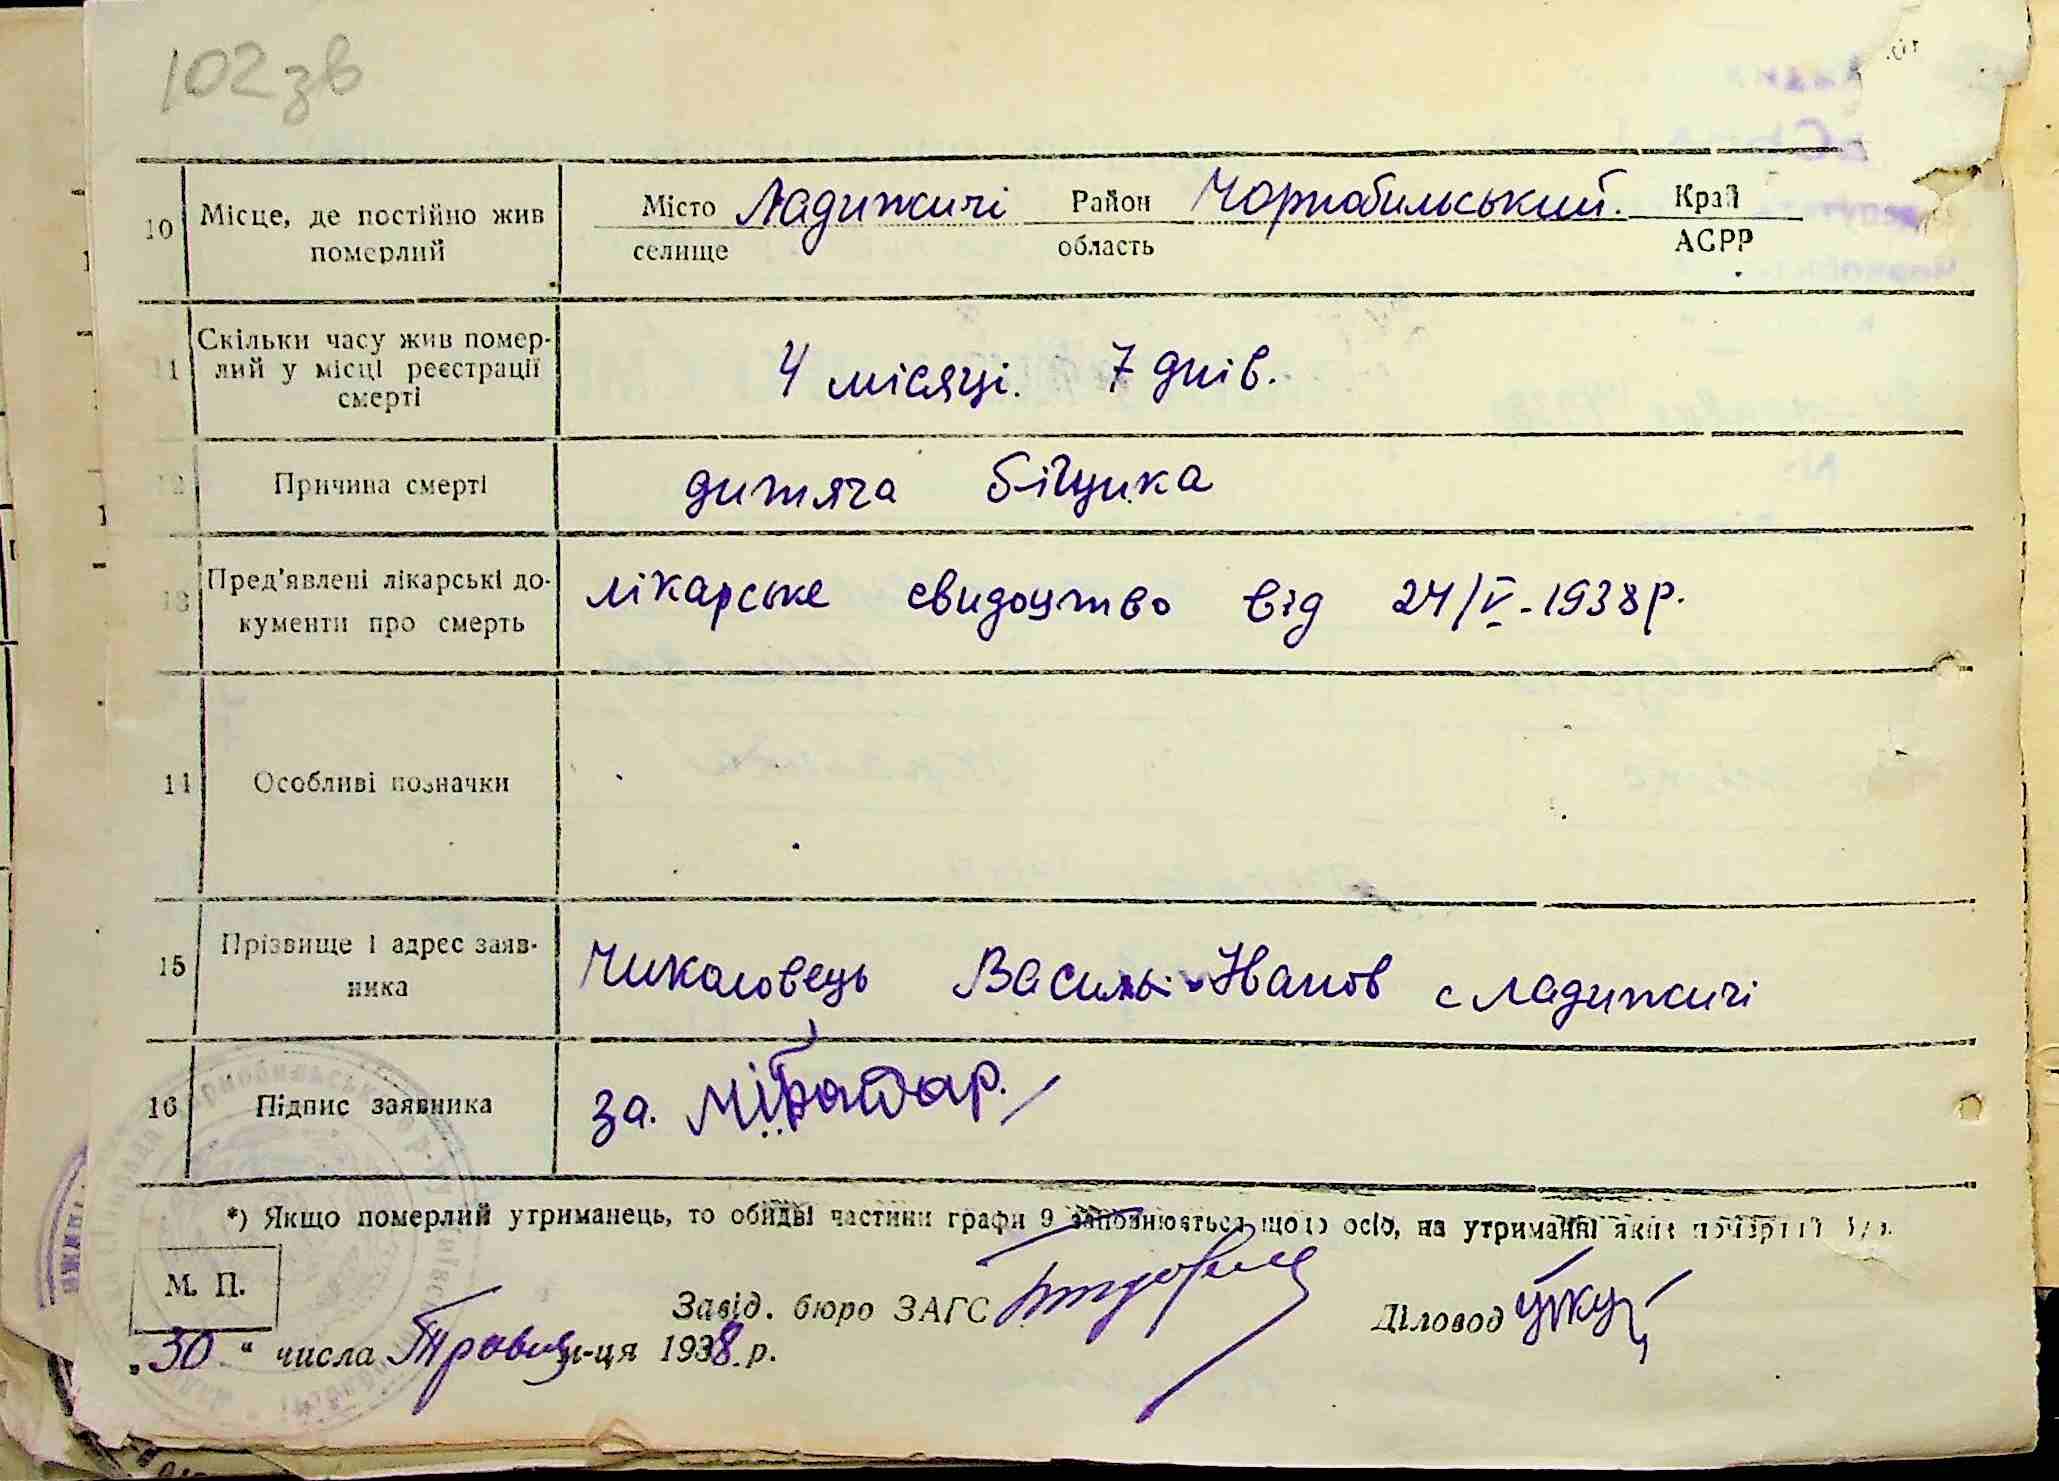 102 зв
10 Місце, де постійно жив померлий
Місто селище Ладижичі Район область Чорнобильський. Край АСРР
11 Скільки часу жив помер-
лий у місці реєстрації
смерті
4 місяці. 7 днів.
12 Причина смерті
дитяча бігунка
13 Пред'явлені лікарські до-
кументи про смерть
лікарське свидоцтво від 24/V-1938р.
14 Особливі позначки
15 Прізвище і адрес заяв-
ника
Чикаловець Василь Іванов с Ладижичі
16 Підпис заявника
за.
*) Якщо померлий утриманець, то обидві частини графи 9 заповнюються щодо осіб, на утриманні яких
М. П.
Завід. бюро ЗАГС
Діловод
„30“ числа Травня м-ця 1938 р.